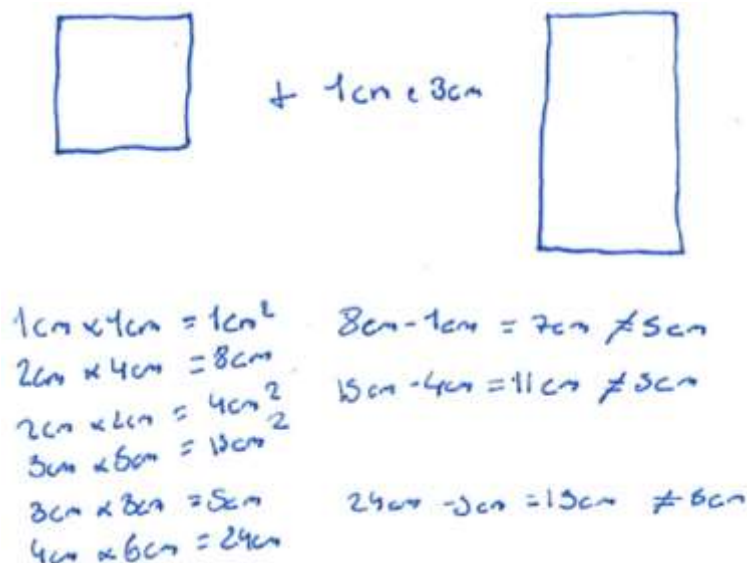 + 1cm e 3cm
1cm x 1cm = 1cm²
2cm x 4cm = 8cm
2cm x 2cm = 4cm²
3cm x 5cm = 15cm²
3cm x 3cm = 9cm
4cm x 6cm = 24cm
8cm - 1cm = 7cm ≠ 5cm
15cm - 4cm = 11cm ≠
24cm - 9cm = 15cm ≠